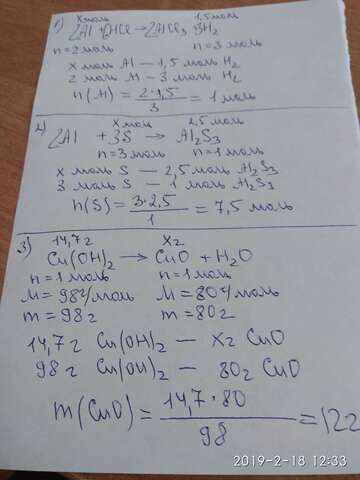 х моль 1,5 моль
1) 2Al + 6HCl → 2AlCl₃ + 3H₂
n = 2 моль n = 3 моль
x моль Al — 1,5 моль H₂
2 моль Al — 3 моль H₂
n(Al) = 2·1,5 / 3 = 1 моль
x моль 2,5 моль
2) 2Al + 3S → Al₂S₃
n = 3 моль n = 1 моль
x моль S — 2,5 моль Al₂S₃
3 моль S — 1 моль Al₂S₃
n(S) = 3·2,5 / 1 = 7,5 моль
3) 14,7 г x г
Cu(OH)₂ → CuO + H₂O
n = 1 моль n = 1 моль
M = 98 г/моль M = 80 г/моль
m = 98 г m = 80 г
14,7 г Cu(OH)₂ — x г CuO
98 г Cu(OH)₂ — 80 г CuO
m(CuO) = 14,7·80 / 98 = 12 г
2019-2-18 12:33